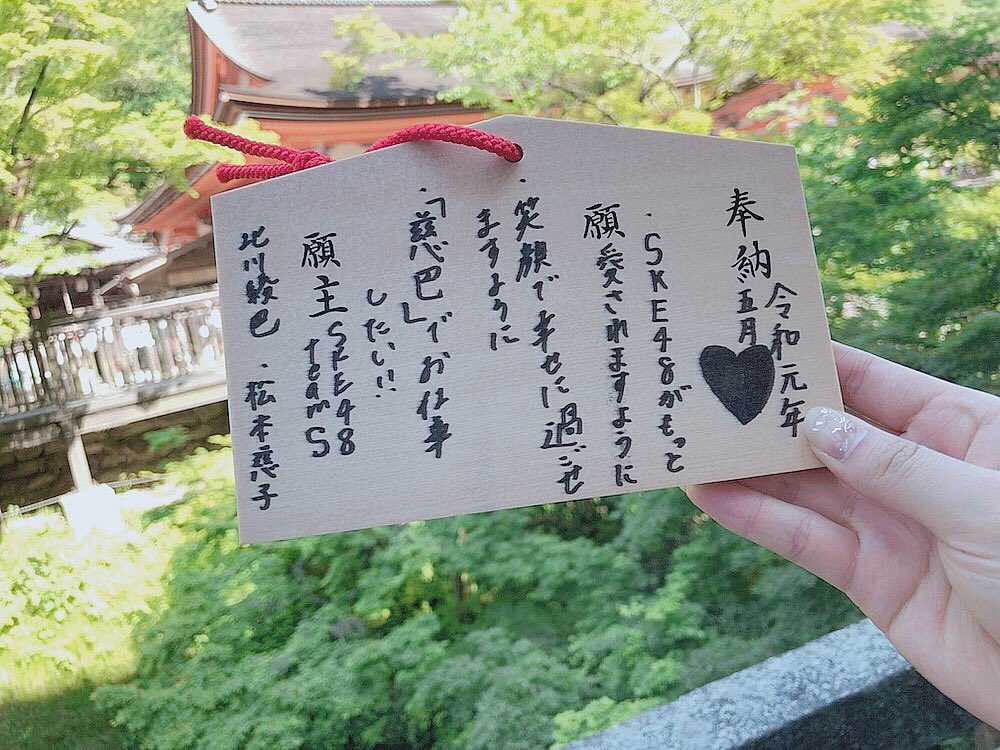 奉納
令和元年
五月
願
・SKE48がもっと
愛されますように
・笑顔で幸せに過ごせ
ますように
・「慈巴」でお仕事
したい!!
願主
SKE48
teamS
北川綾巴・松本慈子